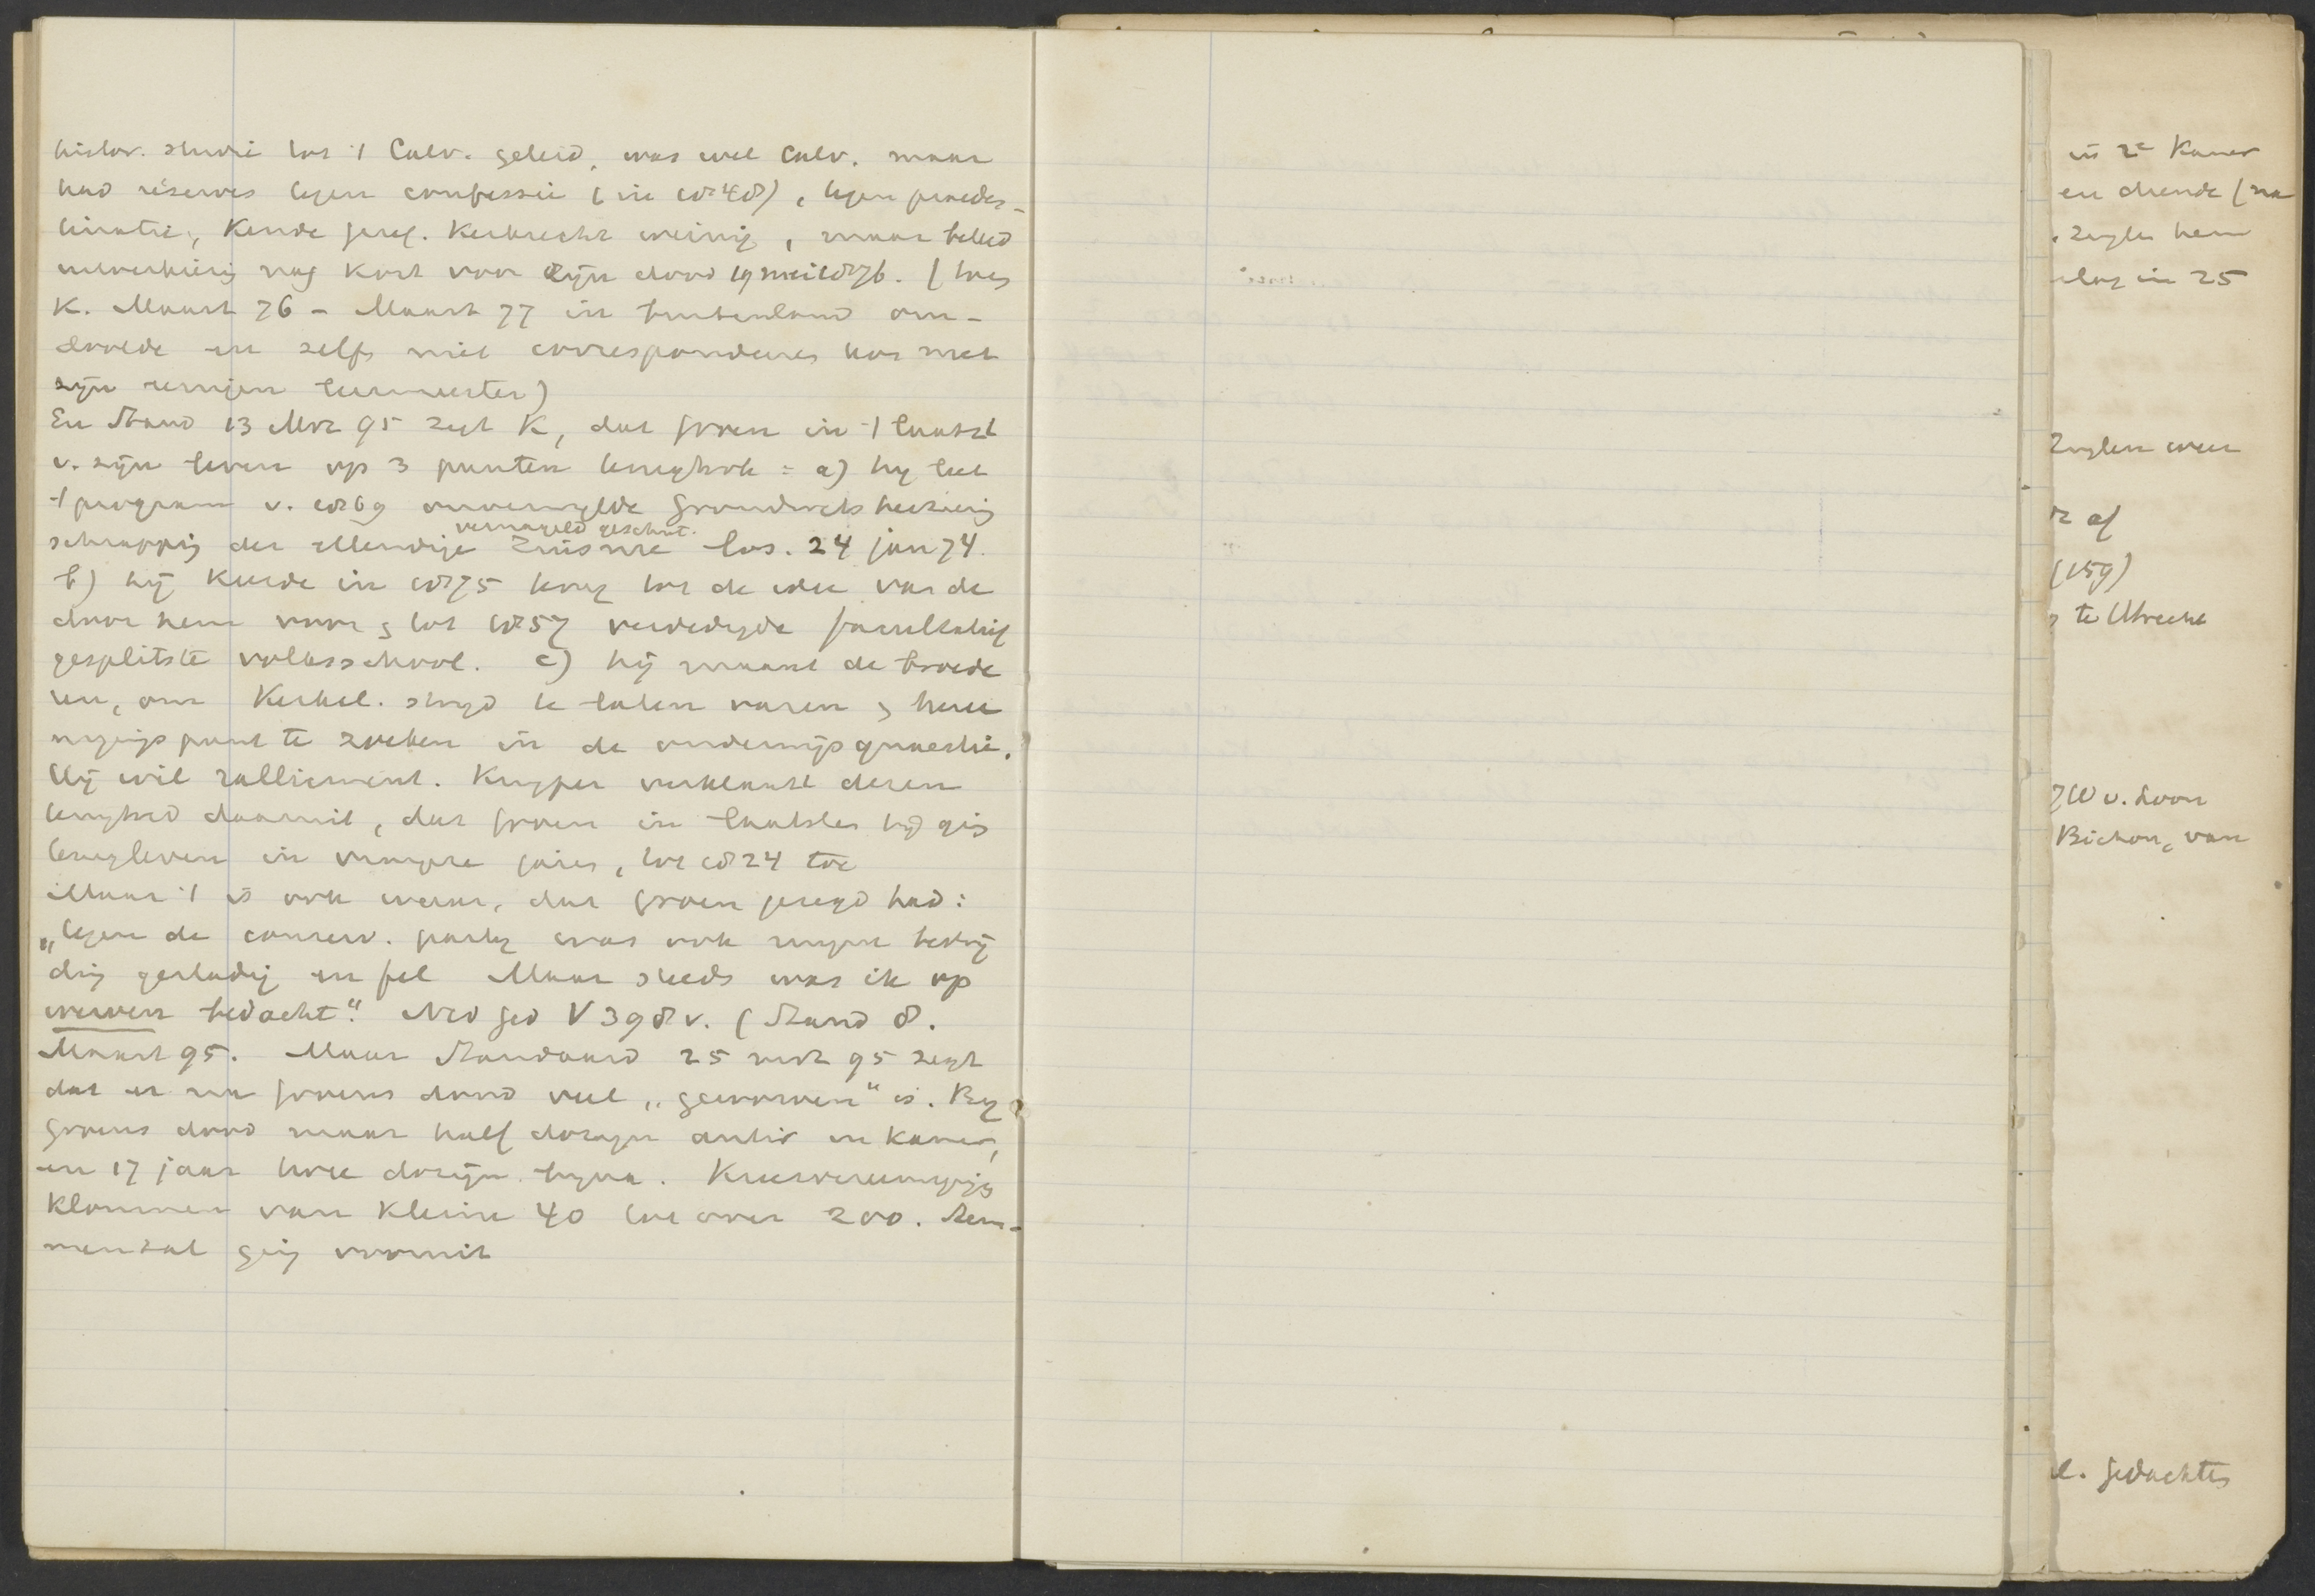 histor. studie tot 't Calv. geleid, was wel Calv. maar
had réserves tegen confessie (in 1848), tegen praedes-
tinatie, kende geref. kerkrecht weinig, maar beleed
nog kort voor zijn dood 19 mei 1876. (toen
K. Maart 76 - Maart 77 in buitenland om-
doolde en zelfs niet correspondeeren kon met
zijn leermeester)
En Stand 13 Mrt 95 zegt K, dat Groen in 't laatst
v. zijn leven op 3 punten terugtrok = a) hy liet
't program v. 1869 Grondwetsherziening
vernageld geschut.
schrapping der ellendige zinsnee los. 24 jan 74.
b) hij keerde in 1875 terug tot de idee van de
door hem voor & tot 1857 verdedigde facultatief
gesplitste volksschool. c) hij maant de broede
ren, om kerkel. strijd te laten varen & heree
nigingspunt te zoeken in de onderwijsquaestie.
Hij wil ralliement. Kuyper verklaart dezen
terugtred daaruit, dat Groen in laatsten tijd ging
terugleven in vroegere jaren, tot 1824 toe
Maar 't is ook waar, dat Groen gezegd had:
„tegen de conserv. party was ook mijne bestrij
ding gestadig en fel Maar steeds was ik op
werven bedacht." Ned Ged V 398 v. (Stand 8.
Maart 95. Maar Standaard 25 mrt 95 zegt
dat er na Groens dood veel „geworven" is. By
Groens dood maar half dozijn antir in kamer,
en 17 jaar twee dozijn byna. Kiesvereenigings
klommen van kleine 40 tot over 200. Stem-
mental ging vooruit
in 2e Kamer
en diende (na
hem
in 25
af
(159)
te Utrecht
v. Loon
Bichon, van
l. gedachten